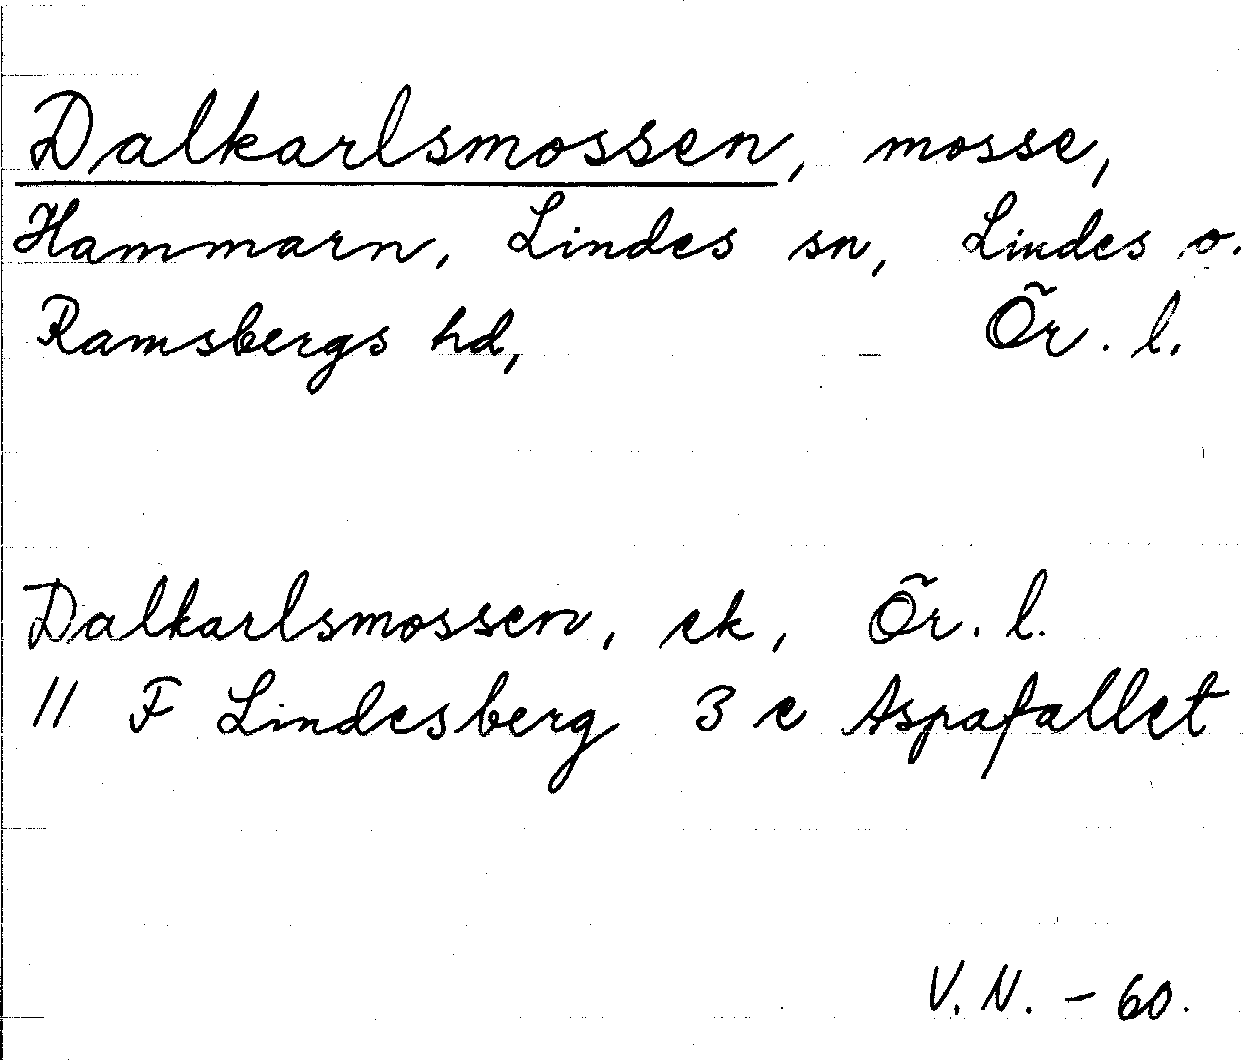 Dalkarlsmossen, mosse,
Hammarn, Lindes sn, Lindes o.
Ramsbergs hd, Ör. l.
Dalkarlsmossen, ek, Ör. l.
11 F Lindesberg 3 e Aspafallet
V. N. - 60.